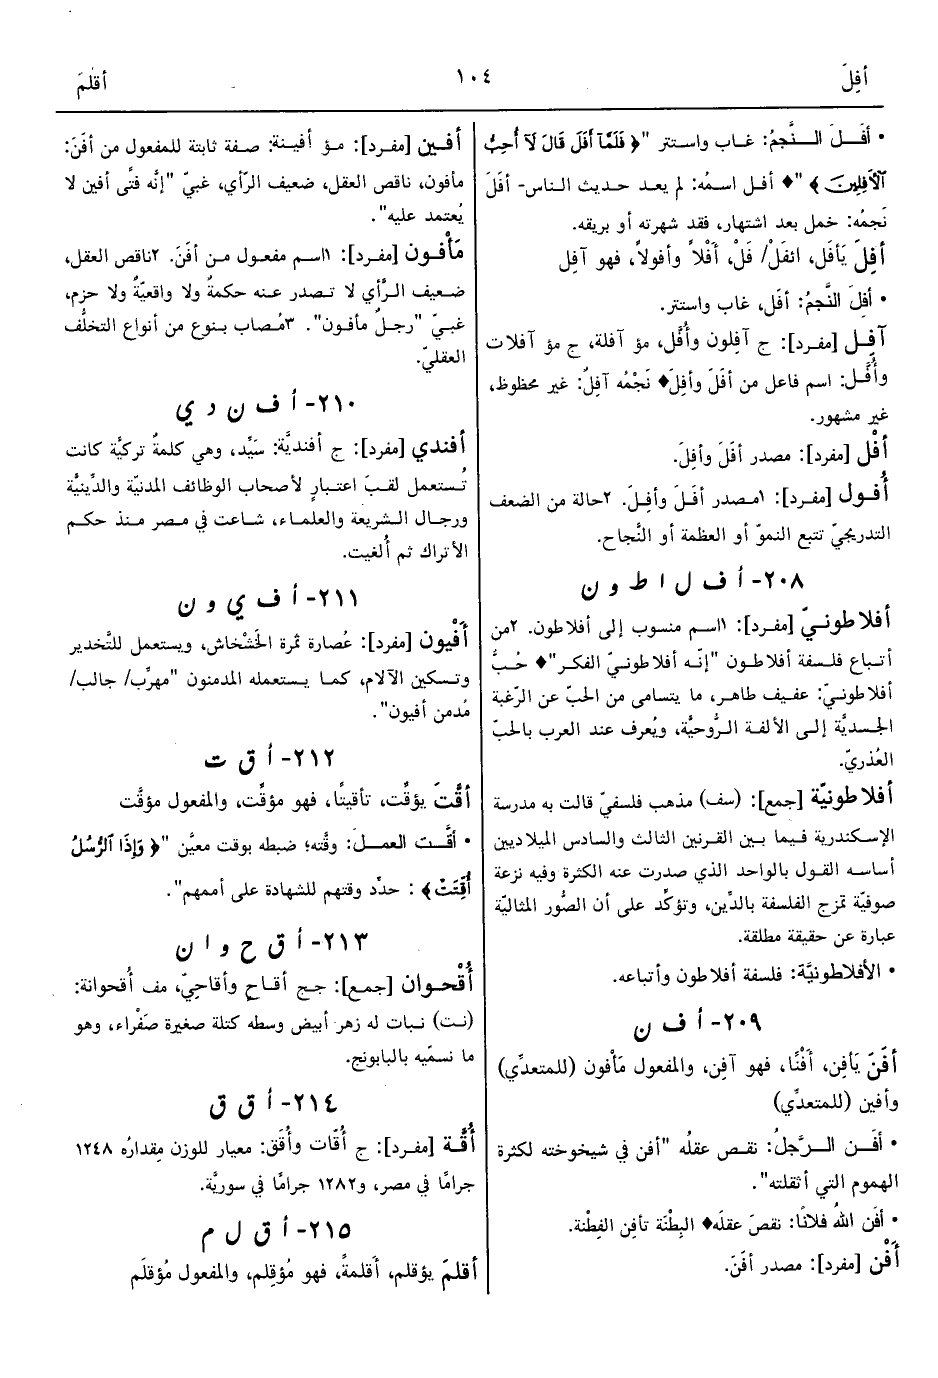 أفِلَ
١٠٤
أقلمَ
• أفَـلَ الـنَّجمُ: غـاب واسـتتر "﴿ فَلَمَّآ أَفَلَ قَالَ لَآ أُحِبُّ
ٱلْأَفِلِينَ ﴾ "♦ أفـل اسـمُه: لم يعـد حديث الـناس- أفَلَ
نَجمُه: خمل بعد اشتهار، فقد شهرته أو بريقه.
أفِلَ يَأفَل، ائفَلْ/ فَلْ، أَفْلاً وأفولاً، فهو آفِل
• أفِلَ النَّجمُ: أفَل، غاب واستتر.
آفِـل [مفـرد]: ج آفِلون وأُفَّل، مؤ آفلة، ج مؤ آفلات
وأُفَّـل: اسـم فاعل من أفَلَ وأفِلَ♦ نَجْمُه آفِلٌ: غير محظوظ،
غير مشهور.
أفْل [مفرد]: مصدر أفَلَ وأفِلَ.
أُفـول [مفرد]: ١مـصدر أفَـلَ وأفِـلَ. ٢حالة من الضعف
التدريجيّ تتبع النموّ أو العظمة أو النَّجاح.
٢٠٨- أ ف ل ا ط و ن
أفلاطونـيّ [مفـرد]: ١اسـم منسوب إلى أفلاطون. ٢من
أتـباع فلـسفة أفلاطـون "إنّـه أفلاطونيّ الفكـر"♦ حُـبٌّ
أفلاطونـيّ: عفـيف طاهـر، ما يتسامى من الحبّ عن الرّغبة
الجـسديَّة إلـى الألفـة الـرُّوحيَّة، ويُعرف عند العرب بالحبّ
العُذريّ.
أفلاطونيّة [جمع]: (سف) مذهب فلسفيّ قالت به مدرسة
الإسكندرية فـيما بـين القرنين الثالث والسادس الميلاديين
أساسـه القـول بالواحد الذي صدرت عنه الكثرة وفيه نزعة
صوفيّة تمزج الفلسفة بالدِّين، وتؤكِّد على أن الصُّور المثاليّة
عبارة عن حقيقة مطلقة.
• الأفلاطونيَّة: فلسفة أفلاطون وأتباعه.
٢٠٩- أ ف ن
أفَنَ يَأفِن، أَفْنًا، فهو آفِن، والمفعول مَأفون (للمتعدِّي)
وأفين (للمتعدِّي)
• أفَـن الـرَّجلُ: نقـص عقلُه "أفن في شيخوخته لكثرة
الهموم التي أثقلته".
• أفَن اللهُ فلانًا: نقصَ عقلَه♦ البِطْنَة تأفِن الفِطْنة.
أَفْن [مفرد]: مصدر أفَنَ.
أفـين [مفـرد]: مـؤ أفيـنة: صـفة ثابتة للمفعول من أفَنَ:
مأفون، ناقص العقل، ضعيف الرّأي، غبيّ "إنَّه فتًى أفين لا
يُعتمد عليه".
مَأْفـون [مفـرد]: ١اسـم مفعول مـن أفَنَ. ٢ناقص العقل،
ضعيف الـرَّأي لا تـصدر عنه حكمةٌ ولا واقعيّةٌ ولا حزم،
غبيّ "رجـلٌ مأفـون". ٣مُصاب بنوع من أنواع التخلُّف
العقليّ.
٢١٠- أ ف ن د ي
أفندي [مفرد]: ج أفنديَّة: سَيِّد، وهي كلمةٌ تركيَّة كانت
تُستعمل لقبَ اعتبارٍ لأصحاب الوظائف المدنيّة والدِّينيَّة
ورجـال الـشريعة والعلمـاء، شـاعت في مصر منـذ حكـم
الأتراك ثم أُلغيت.
٢١١- أ ف ي و ن
أَفْيون [مفرد]: عُصارة ثمرة الخَشْخاش، ويستعمل للتَّخدير
وتـسكين الآلام، كمـا يـستعمله المدمنون "مهرِّب/ جالب/
مُدمن أفيون".
٢١٢- أ ق ت
أقَّتَ يؤقِّت، تأقيتًا، فهو مؤقِّت، والمفعول مؤقَّت
• أقَّـت العمـلَ: وقَّته؛ ضبطه بوقت معيَّن "﴿ وَإِذَا ٱلرُّسُلُ
أُقِّتَتْ ﴾ : حدِّد وقتهم للشهادة على أممهم".
٢١٣- أ ق ح و ا ن
أُقْحُـوان [جمـع]: جـج أقـاحٍ وأقـاحيّ، مف أُقحوانة:
(نـت) نـبات له زهر أبيض وسطه كتلة صغيرة صَفْراء، وهو
ما نسمّيه بالبابونج.
٢١٤- أ ق ق
أُقَّـة [مفـرد]: ج أُقّات وأُقَق: معيار للوزن مِقدارُه ١٢٤٨
جرامًا في مصر، و١٢٨٢ جرامًا في سوريَّة.
٢١٥- أ ق ل م
أقلمَ يؤقلم، أَقلمةً، فهو مُؤقلِم، والمفعول مُؤقلَم